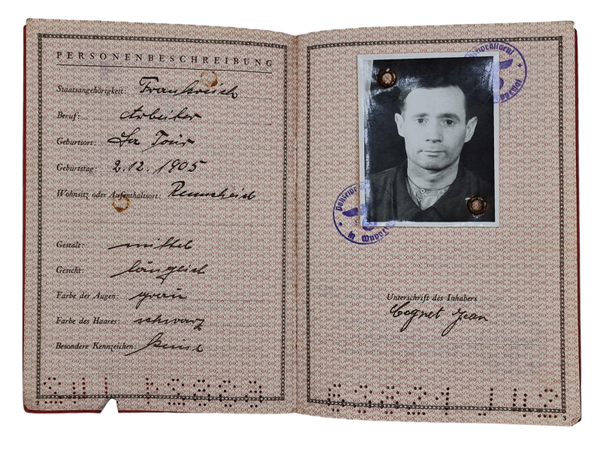 PERSONENBESCHREIBUNG
Staatsangehörigkeit: Frankreich
Beruf: Arbeiter
Geburtsort: La Tour
Geburtstag: 2.12.1905
Wohnsitz oder Aufenthaltsort: Remscheid
Gestalt: mittel
Gesicht: länglich
Farbe der Augen: grau
Farbe des Haares: schwarz
Besondere Kennzeichen: keine
Unterschrift des Inhabers
Cognet Jean
3